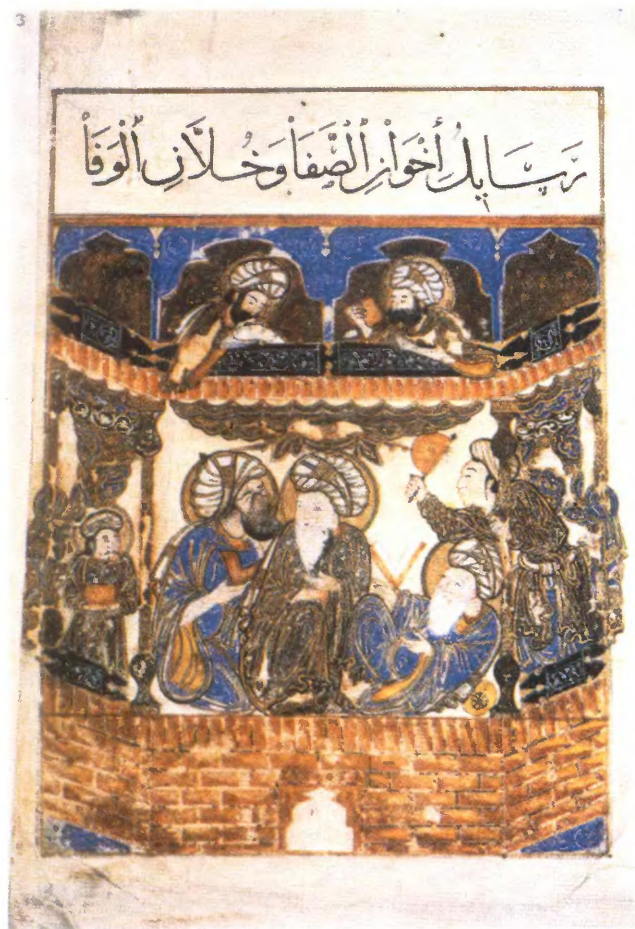 3
رَسَايِلُ أَخْوَانِ الصَّفَا وَخُلَّانِ الْوَفَا